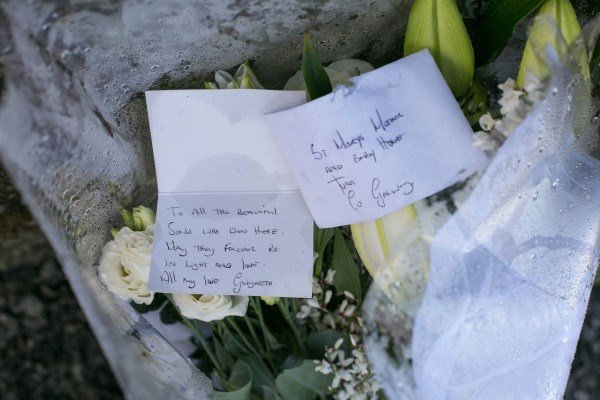 To All The Beautiful
Souls who Died Here.
May They Forever Be
in Light and Love.
All my love Gwyneth.
St. Marys Mother
and Baby Home
Tuam
Co Galway